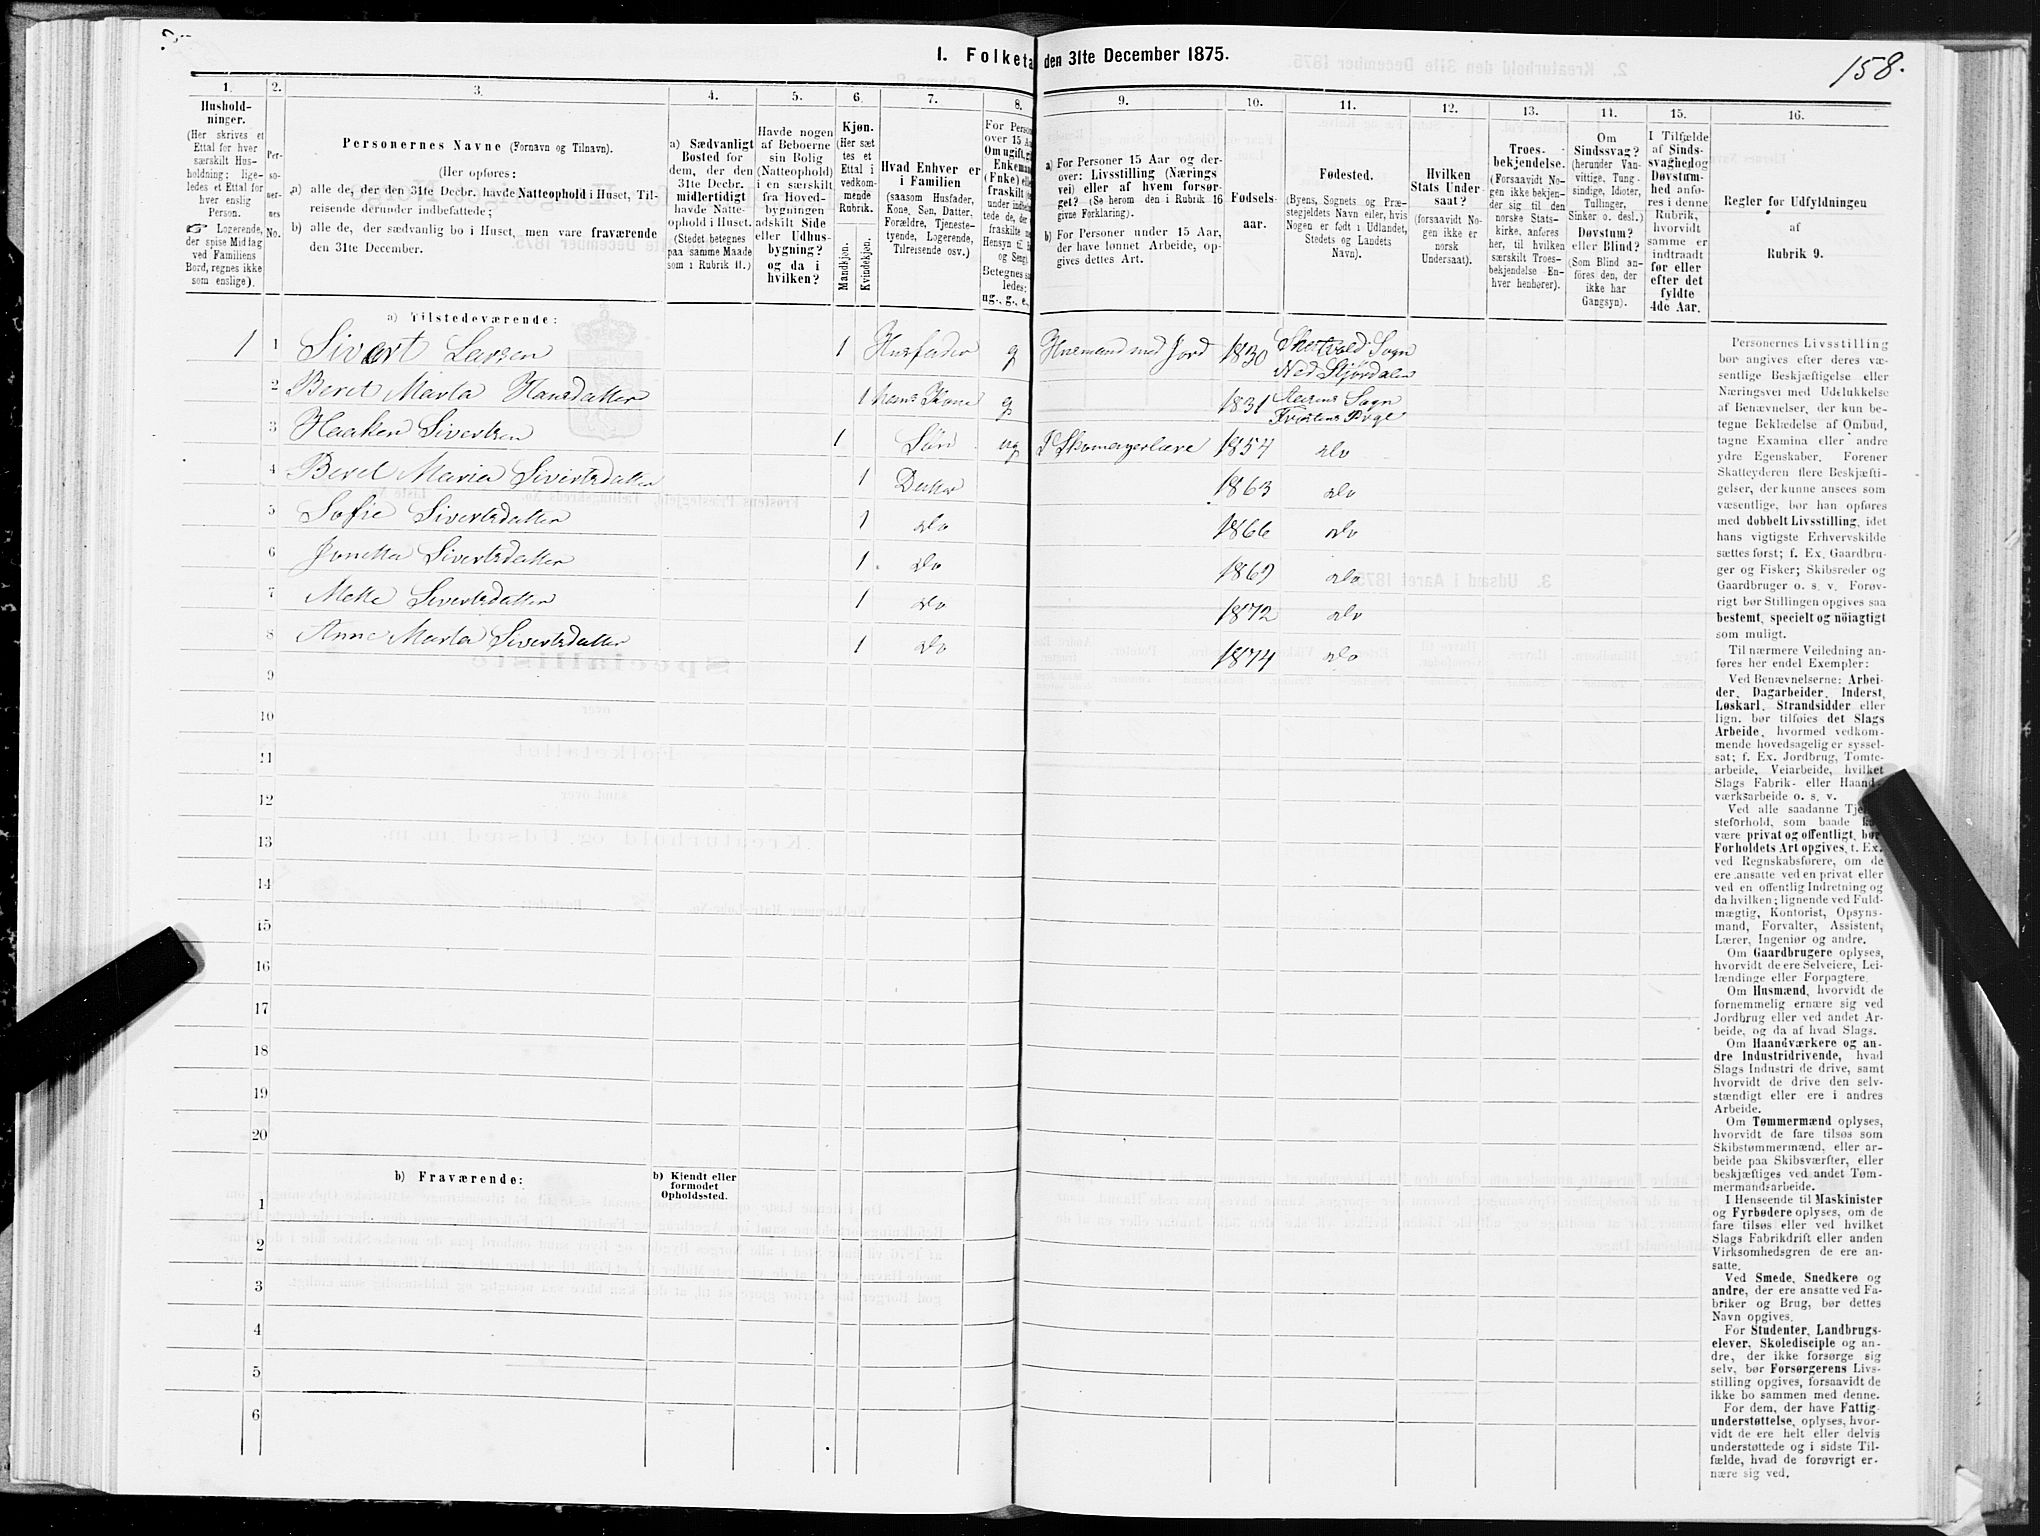 158.
I. Folketa den 31te December 1875.
1. 2. 3. 4. 5. 6. 7. 8. 9. 10. 11. 12. 13. 14. 15. 16.
Hushold-
ninger.
(Her skrives et
Ettal for hver
særskilt Hus-
holdning; lige-
ledes et Ettal for
hver enslig
Person.
☞ Logerende,
der spise Middag
ved Familiens
Bord, regnes ikke
som enslige).
Per-
so-
ner-
nes
No.
Personernes Navne (Fornavn og Tilnavn).
(Her opføres:
a) alle de, der den 31te Decbr. havde Natteophold i Huset, Til-
reisende derunder indbefattede;
b) alle de, der sædvanlig bo i Huset, men vare fraværende
den 31te December.
a) Sædvanligt
Bosted for
dem, der den
31te Decbr.
midlertidigt
havde Natte-
ophold i Huset.
(Stedet betegnes
paa samme Maade
som i Rubrik 11.)
Havde nogen
af Beboerne
sin Bolig
(Natteophold)
i en særskilt
fra Hoved-
bygningen
adskilt Side
eller Udhus-
bygning?
og da i
hvilken?
Kjøn.
(Her sæt
tes et
Ettal i
vedkom-
mende
Rubrik.
Mandkjøn.
Kvindekjøn.
Hvad Enhver er
i Familien
(saasom Husfader,
Kone, Søn, Datter,
Forældre, Tjeneste-
tyende, Logerende,
Tilreisende osv.)
For Perso
over 15 Aa
Om ugift, g
Enkema
(Fnke) el
fraskilt
under indbe
tede de, der
fraskilte
Hensyn til
og Seng).
Betegnes s
ledes:
ug., g., e.,
a) For Personer 15 Aar og der-
over: Livsstilling (Nærings
vei) eller af hvem forsør-
get? (Se herom den i Rubrik 16
givne Forklaring).
b) For Personer under 15 Aar,
der have lønnet Arbeide, op-
gives dettes Art.
Fødsels-
aar.
Fødested.
(Byens, Sognets og Præ-
stegjeldets Navn eller, hvis
Nogen er født i Udlandet,
Stedets og Landets
Navn).
Hvilken
Stats Under-
saat?
(forsaavidt No-
gen ikke er
norsk
Undersaat).
Troes-
bekjendelse.
(Forsaavidt No-
gen ikke bekjen-
der sig til den
norske Stats-
kirke, anføres
her, til hvilken
særskilt Troes-
bekjendelse En-
hver henhører).
Om
Sindssvag?
(herunder Van-
vittige, Tung-
sindige, Idioter,
Tullinger,
Sinker o. desl.)
Døvstum?
eller Blind?
(Som Blind an-
føres den, der
ikke har
Gangsyn).
I Tilfælde
af Sinds-
svaghed og
Døvstum-
hed anfø-
res i denne
Rubrik,
hvorvidt
samme er
indtraadt
før eller
efter det
fyldte
4de Aar.
Regler for Udfyldningen
af
Rubrik 9.
a) Tilstedeværende:
1 1 Sivert Larsen 1 Husfader g Husmand med Jord 1830 Skatvold Sogn
Ned Stjørdalen
2 Beret Marta Hansdatter 1 hans Kone g 1831 Aasens Sogn
Frostens Prgl
3 Haaken Sivertsen 1 Søn ug I Skomagerlære 1854 do
4 Beret Maria Sivertsdatter 1 Datter 1863 do
5 Sofie Sivertsdatter 1 do 1866 do
6 Jonetta Sivertsdatter 1 do 1869 do
7 Mette Sivertsdatter 1 do 1872 do
8 Anne Marta Sivertsdatter 1 do 1874 do
9
10
11
12
13
14
15
16
17
18
19
20
b) Fraværende:
b) Kjendt eller
formodet
Opholdssted.
1
2
3
4
5
6
Personernes Livsstilling
bør angives efter deres væ-
sentlige Beskjæftigelse eller
Næringsvei med Udelukkelse
af Benævnelser, der kun be-
tegne Beklædelse af Ombud,
tagne Examina eller andre
ydre Egenskaber. Forener
Skatteyderen flere Beskjæfti-
gelser, der kunne ansees som
væsentlige, bør han opføres
med dobbelt Livsstilling, idet
hans vigtigste Erhvervskilde
sættes først; f. Ex. Gaardbru-
ger og Fisker; Skibsreder og
Gaardbruger o. s. v. Forøv-
rigt bør Stillingen opgives saa
bestemt, specielt og nöiagtigt
som muligt.
Til nærmere Veiledning an-
føres her endel Exempler:
Ved Benævnelserne: Arbei-
der, Dagarbeider, Inderst,
Løskarl, Strandsidder eller
lign. bør tilføies det Slags
Arbeide, hvormed vedkom-
mende hovedsagelig er syssel-
sat; f. Ex. Jordbrug, Tomte-
arbeide, Veiarbeide, hvilket
Slags Fabrik- eller Haand-
værksarbeide o. s. v.
Ved alle saadanne Tje
steforhold, som baade
være privat og offentligt, bør
Forholdets Art opgives, t. Ex.
ved Regnskabsførere, om de
ere ansatte ved en privat eller
ved en offentlig Indretning og
da hvilken; lignende ved Fuld-
mægtig, Kontorist, Opsyns-
mand, Forvalter, Assistent,
Lærer, Ingeniør og andre.
Om Gaardbrugere oplyses,
hvorvidt de ere Selveiere, Lei-
lændinge eller Forpagtere.
Om Husmænd, hvorvidt de
fornemmelig ernære sig ved
Jordbrug eller ved andet Ar-
beide, og da af hvad Slags.
Om Haandværkere og an-
dre Industridrivende, hvad
Slags Industri de drive, samt
hvorvidt de drive den selv-
stændigt eller ere i andres
Arbeide.
Om Tømmermænd oplyses,
hvorvidt de fare tilsøs som
Skibstømmermænd, eller ar-
beide paa Skibsværfter, eller
beskjæftiges ved andet Tøm-
mermandsarbeide.
I Henseende til Maskinister
og Fyrbødere oplyses, om de
fare tilsøs eller ved hvilket
Slags Fabrikdrift eller anden
Virksomhedsgren de ere an-
satte.
Ved Smede, Snedkere og
andre, der ere ansatte ved Fa-
briker og Brug, bør dettes
Navn opgives.
For Studenter, Landbrugs-
elever, Skoledisciple og an-
dre, der ikke forsørge sig
selv, bør Forsørgerens Livs-
stilling opgives, forsaavidt de
ikke bo sammen med denne.
For dem, der have Fattig-
understøttelse, oplyses, hvor-
vidt de ere helt eller delvis
understøttede og i sidste Til-
fælde, hvad de forøvrigt er-
nære sig ved.